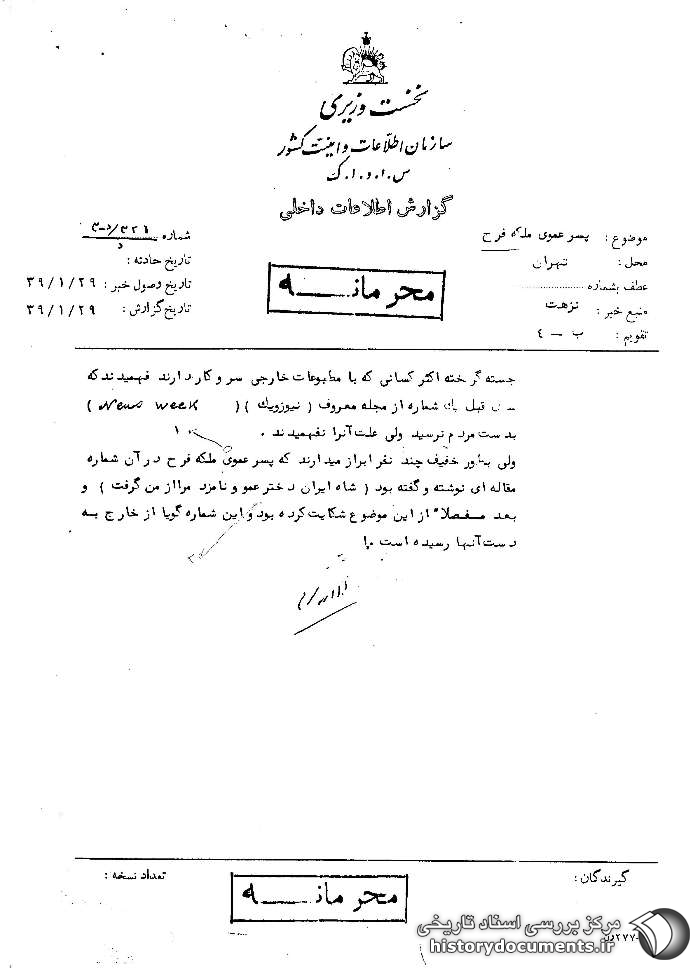 نخست وزیری
سازمان اطلاعات و امنیت کشور
س.ا.و.ا.ک
گزارش اطلاعات داخلی
موضوع : پسر عموی ملکه فرح
محل : تهران
عطف بشماره
منبع خبر : نزهت
تقویم : ب - ٤
شماره
تاریخ حادثه :
تاریخ وصول خبر : ۳۹/۱/۲۹
تاریخ گزارش : ۳۹/۱/۲۹
محرمانه
جسته گرخته اکثر کسانی که با مطبوعات خارجی سر و کار دارند فهمیدند که
قبل یك شماره از مجله معروف ( نیوزویك ) ( News week )
بدست مردم نرسید ولی علت آنرا نفهمیدند .
ولی بطور خفیف چند نفر ابراز میدارند که پسر عموی ملکه فرح در آن شماره
مقاله ای نوشته و گفته بود ( شاه ایران دختر عمو و نامزد مرا از من گرفت ) و
بعد مفصلاً از این موضوع شکایت کرده بود و این شماره گویا از خارج به
دست آنها رسیده است .
گیرندگان :
تعداد نسخه :
محرمانه
مرکز بررسی اسناد تاریخی
historydocuments.ir